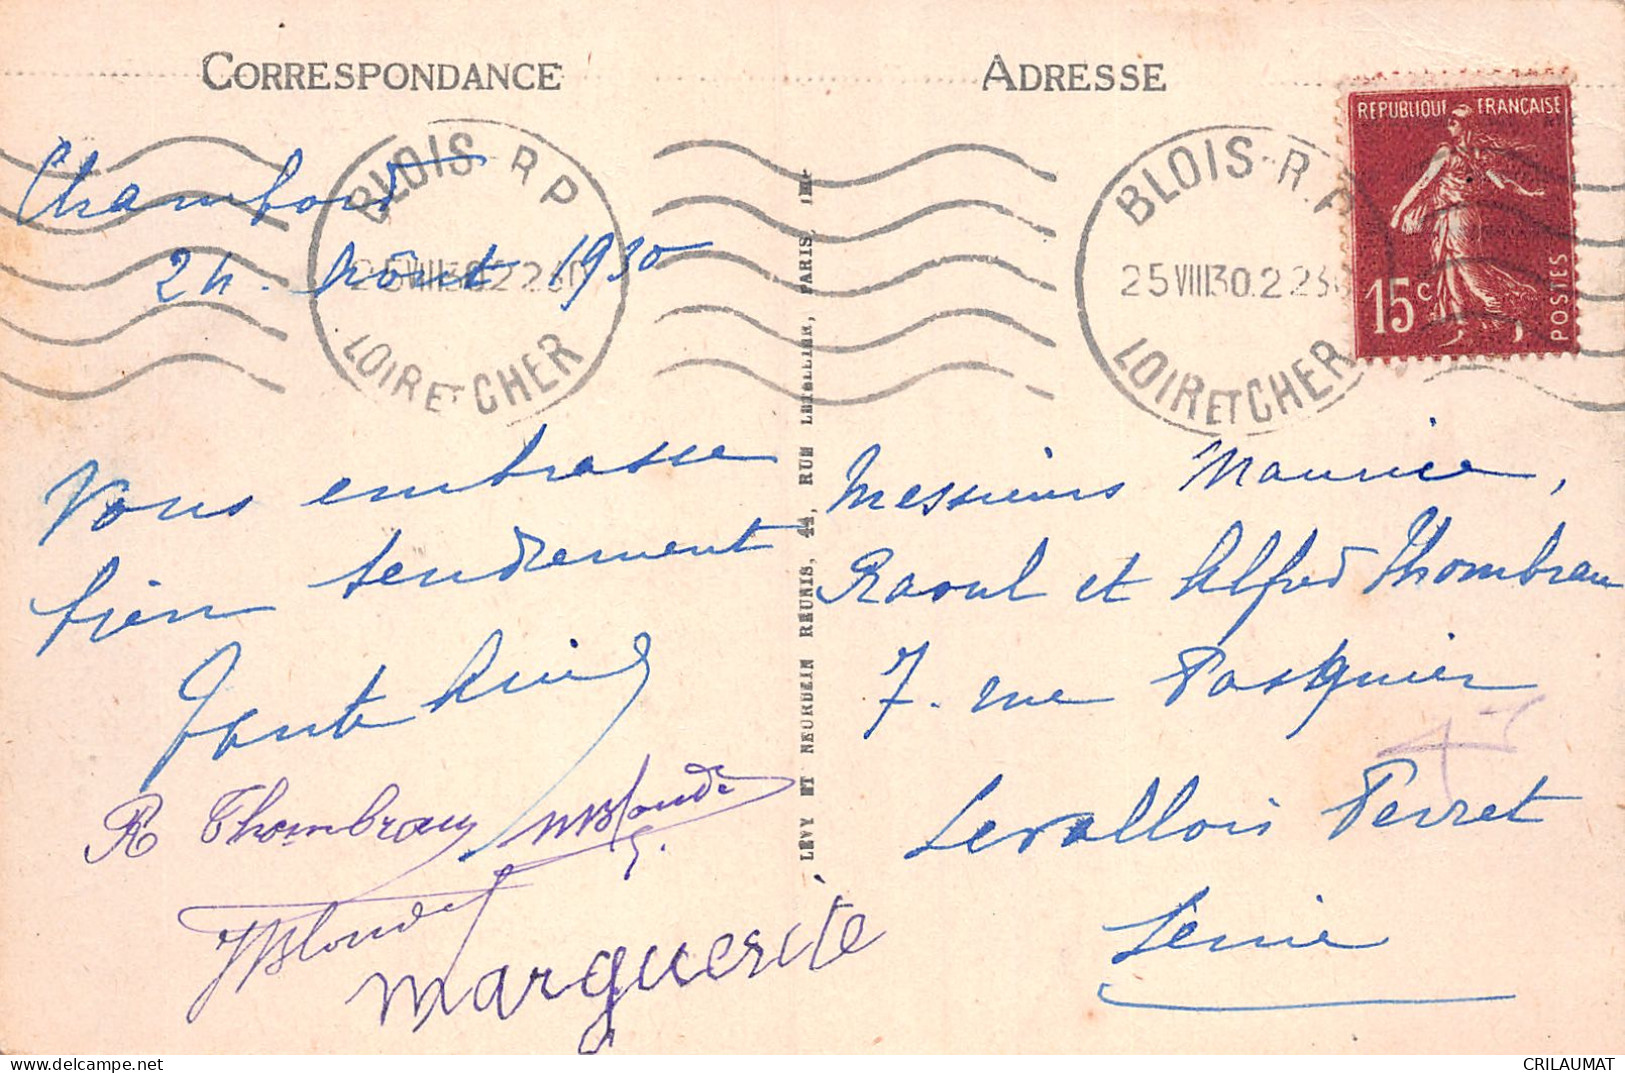 CORRESPONDANCE
ADRESSE
REPUBLIQUE FRANÇAISE
15c
POSTES
BLOIS - R.P.
25 VIII 30. 2 230
LOIR ET CHER
BLOIS - R P
25 VIII 30 22 30
LOIR ET CHER
Chambord
24. Août 1930
Vous embrasse
bien tendrement
R Thombrau MBlondé
JBlondel
Marguerite
LÉVY ET NEURDEIN RÉUNIS, 44, RUE LETELLIER, PARIS, IMP
Messieurs Maurice,
Raoul et Alfred Thombrau
7. rue Pasquier
Levallois Perret
Seine
CRILAUMAT